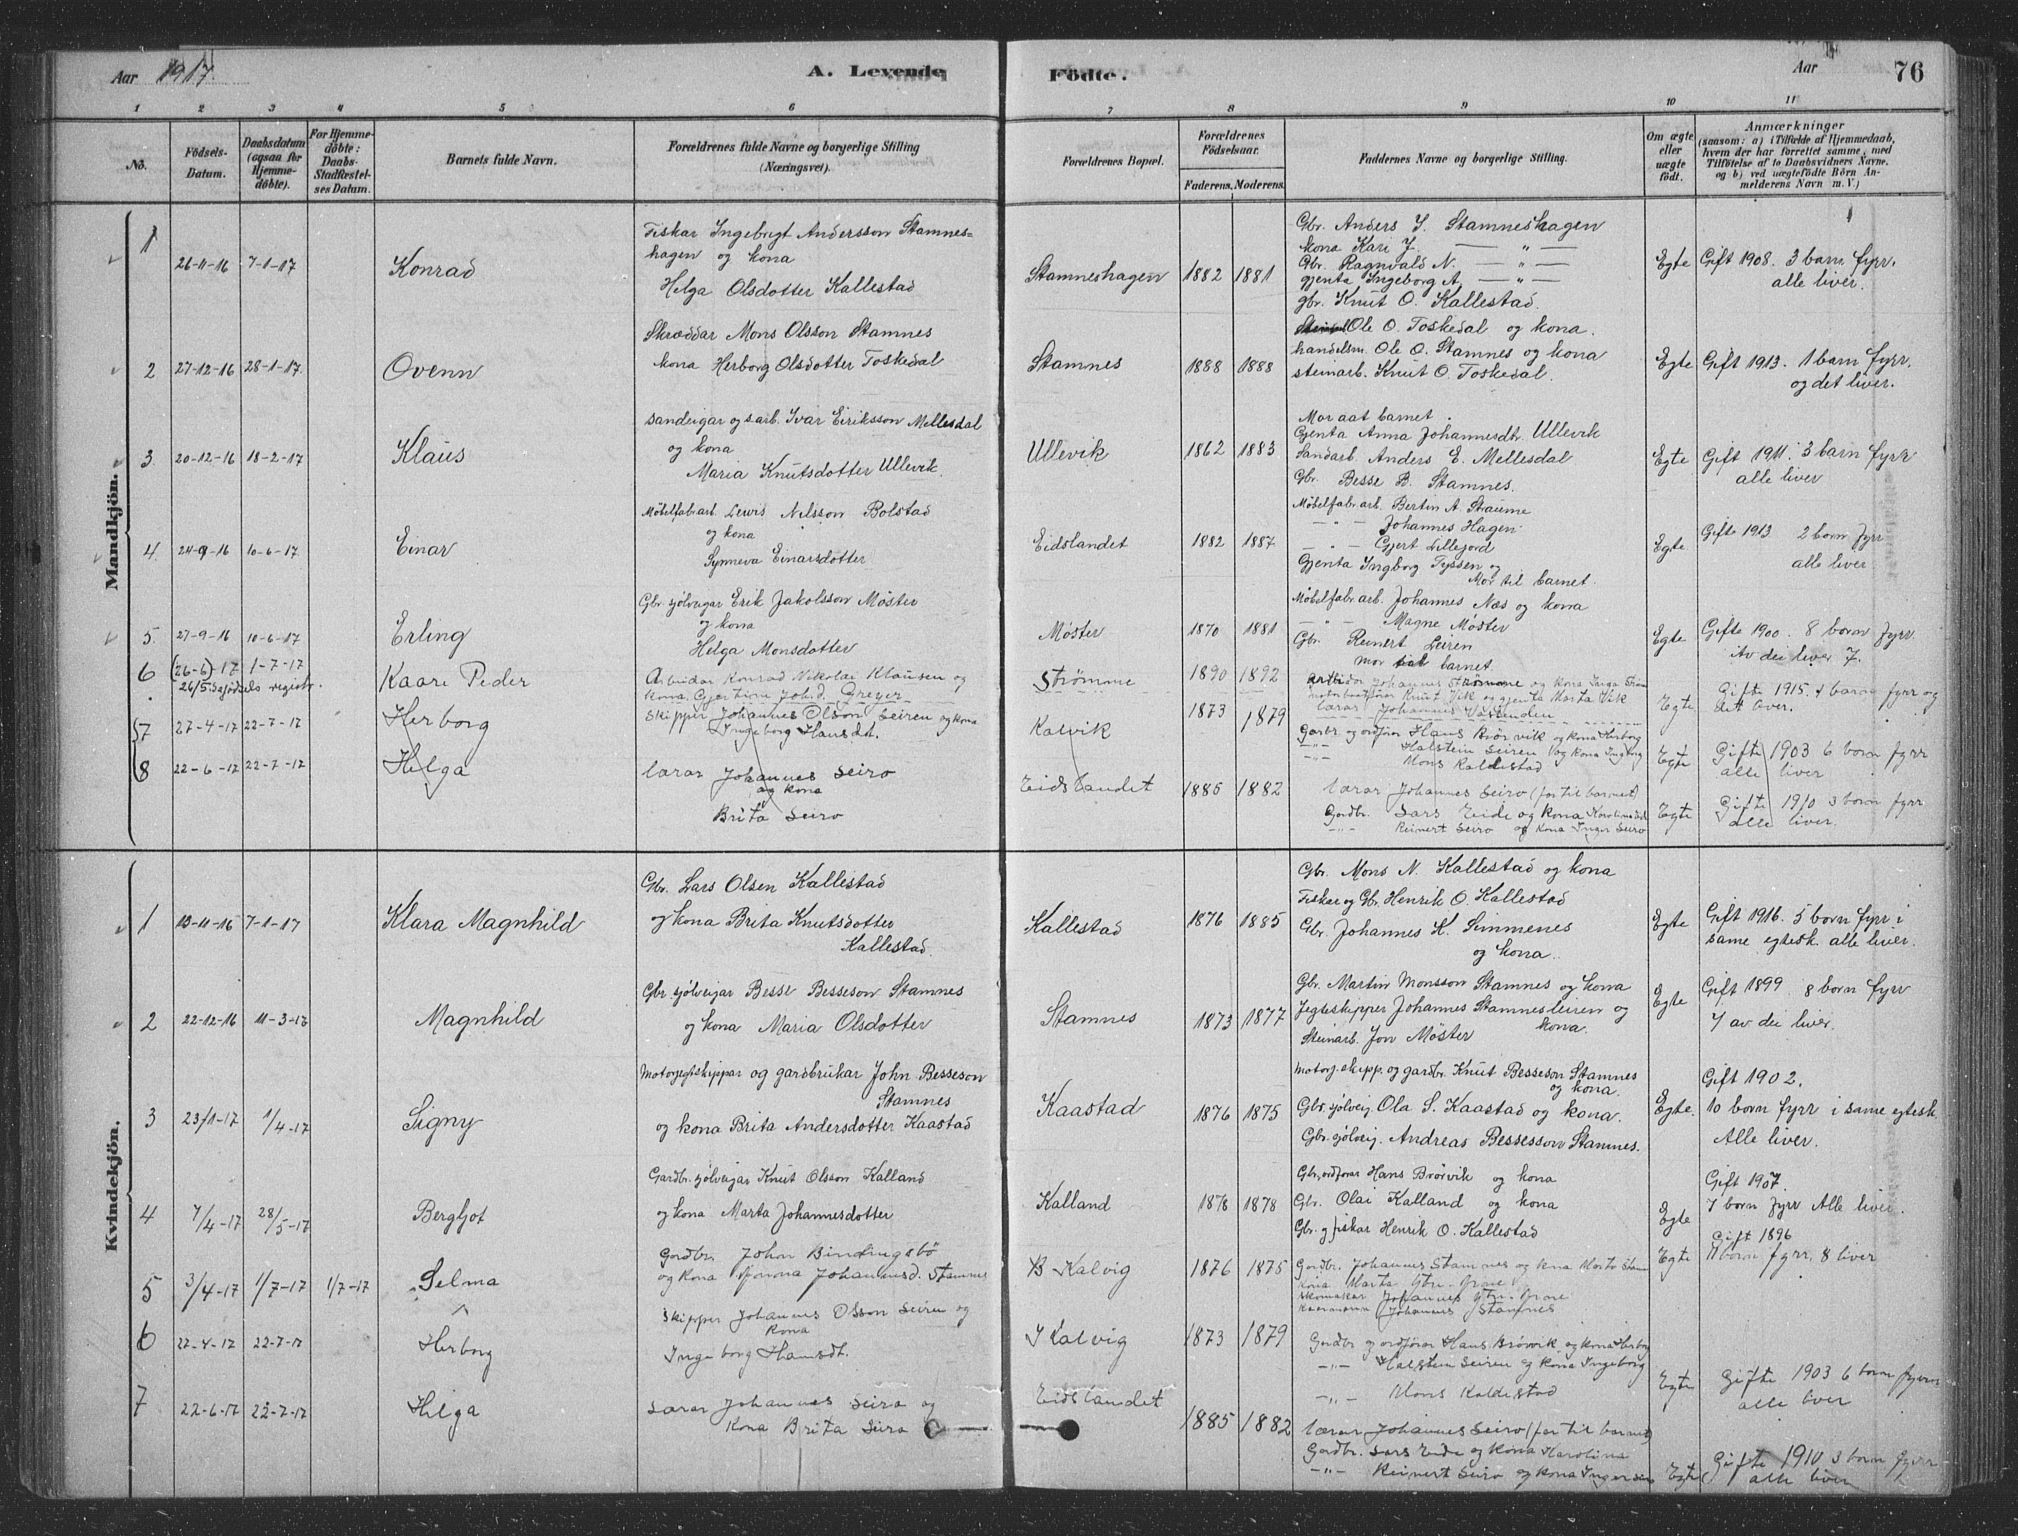 Aar 1917. A. Levende Födte. Aar 76
1 2 3 4 5 6 7 8 9 10 11
No. Födsels-Datum. Daabsdatum (ogsaa for Hjemmedöbte). For Hjemmedöbte: Daabs-Stadfæstelses Datum. Barnets fulde Navn. Forældrenes fulde Navne og borgerlige Stilling (Næringsvei). Forældrenes Bopæl. Forældrenes Födselsaar. Faderens. Moderens. Faddernes Navne og borgerlige Stilling. Om ægte eller uægte födt. Anmærkninger (saasom: a) i Tilfælde af Hjemmedaab, hvem der har forrettet samme, med Tilföielse af to Daabsvidners Navne, og b) ved uægtefödte Börn Anmelderens Navn m. V.)
Mandkjön.
1 26-11-16 7-1-17 Konrad
Fiskar Ingebrigt Andersson Stamnes-
hagen og kona
Helga Olsdotter Kallestad
Stamneshagen 1882 1881
Gbr. Anders I. Stamneshagen
kona Kari J. — „ —
Gbr. Ragnvald N. — „ —
gjenta Ingeborg A. — „ —
gbr. Knut O. Kallestad
Egte Gift 1908. 3 barn fyrr.
alle liver.
2 27-12-16 28-1-17 Ovenn
Skræddar Mons Olsson Stamnes
kona Herborg Olsdotter Toskedal
Stamnes 1888 1888
Ole O. Toskedal og kona.
handelsm. Ole O. Stamnes og kona
steinarb. Knut O. Toskedal.
Egte Gift 1913. 1 barn fyrr.
og det liver.
3. 20-12-16 18-2-17 Klaus
sandeigar og s.arb. Ivar Eiriksson Mellesdal
og kona
Maria Knutsdotter Ullevik.
Ullevik 1862 1883
Mor aat barnet.
Gjenta Anna Johannesdt. Ullevik
Sandarb. Anders E. Mellesdal
Gbr. Besse B. Stamnes.
Egte Gift 1911. 3 barn fyrr
alle liver
4. 24-9-16 10-6-17 Einar
Møbelfabr.arb. Lewis Nilsson Bolstad
og kona
Synneva Einarsdotter
Eidslandet 1882 1887
Møbelfabr.arb. Bertin A. Straume
— „ — Johannes Hagen
— „ — Gjert Lillejord
Gjenta Ingborg Tyssen og
Mor til barnet.
Egte Gift 1913 2 born fyrr
alle liver
5. 27-9-16 10-6-17 Erling
Gbr. sjølveigar Erik Jakolsson Møster
og kona
Helga Monsdotter
Møster 1870 1881
Møbelfabr.arb. Johannes Næs og kona
— „ — Magne Møster
Gbr. Reinert Leiren
mor til barnet.
Egte Gifte 1900. 8 born fyrr.
Av dei liver 7.
6 (26-6)-17 1-7-17 Kaare Peder
26/5 s. registr.
Arbeidar Konrad Nikolai Klausen og
kona Gjertine Joh.d. Greyer
Strømme 1890 1892
Johannes Strømme og kona Inga Strøm
Knut Vik og gjenta Marta Vik
lærar Johannes Vassenden
Egte Gifte 1915. 1 barn fyrr og
det liver.
7 27-4-17 22-7-17 Herborg
Skipper Johannes Olson Leiren og kona
Ingeborg Hansdt.
Kalvik 1873 1879
Gardbr. og ordførar Hans Brørvik og kona Herborg
— „ — Halstein Leiren og kona Ingeborg
Mons Kallestad
Egte Gifte 1903 6 born fyrr
alle liver
8 22-6-17 22-7-17 Helga
Lærar Johannes Seiro
og kona
Brita Seiro
Eidslandet 1885 1882
Lærar Johannes Seiro (far til barnet)
Gardbr. Lars Eide og kona Karolina
— „ — Reinert Seiro og kona Inger Seiro
Egte Gifte 1910 3 born fyrr
alle liver.
Kvindekjön.
1 13-11-16 7-1-17 Klara Magnhild
Gbr. Lars Olsen Kallestad
og kona Brita Knutsdotter
Kallestad.
Kallestad 1876 1885
Gbr. Mons N. Kallestad og kona
Fisker og Gb. Henrik O. Kallestad
Gbr. Johannes K. Simmenes
og kona.
Egte Gift 1916. 5 born fyrr i
same egtesk. alle liver.
2 22-12-16 11-3-17 Magnhild
Gbr sjølveigar Besse Besseson Stamnes
og kona Maria Olsdotter
Stamnes 1873 1877
Gbr. Martin Monsson Stamnes og kona
Jegteskipper Johannes Stamnesleiren og
kona.
Steinarb. Jon Møster
Egte Gift 1899. 8 born fyrr
7 av dei liver.
3 23/1-17 1/4-17 Signy
Motorjegtskippar og gardbrukar John Besseson
Stamnes
og kona Brita Andersdotter Kaastad
Kaastad 1876 1875
Motorj.skipp. og gardbr. Knut Besseson Stamnes
og kona.
Gbr. sjølveig. Ola S. Kaastad og kona.
Gbr. sjølveig. Andreas Bessesson Stamnes.
Egte. Gift 1902.
10 born fyrr i same egtesk.
Alle liver.
4 7/4-17 28/5-17 Bergljot
Gardbr. sjølveigar Knut Olsson Kalland
og kona Marta Johannesdotter
Kalland 1876 1878
Gbr. ordførar Hans Brørvik og kona
Gbr. Olai Kalland og kona
Gbr. og fiskar Henrik O. Kallestad
Egte Gift 1907
7 born fyrr Alle liver.
5 3/4-17 1/7-17 1/7-17 Selma
Gardbr. John Bindingsbø
og kona Johannesd. Stamnes
Kalvig 1876 1875
Gardbr. Johannes Stamnes og kona Marta
kona Marta
skomakar Johannes
Johannes Stamnes
Egte Gift 1896
11 born fyrr. 8 liver
6 22-4-17 22-7-17 Herborg
Skipper Johannes Olsson Leiren og
kona
Ingeborg Hansdt.
Kalvig 1873 1879
Gardbr og ordførar Hans Brørvik og kona Herborg
— „ — Halstein Leiren og kona Ingeborg
— „ — Mons Kallestad
Egte Gifte 1903 6 born fyrr
alle liver
7 22-6-17 22-7-17 Helga
Lærar Johannes Seiro og
Kona Brita Seiro
Eidslandet 1885 1882
Lærar Johannes Seiro (far til barnet)
Gardbr. Lars Eide og kona Karolina
— „ — Reinert Seiro og kona Inger Seiro
Egte Gifte 1910 3 born fyrr
alle liver